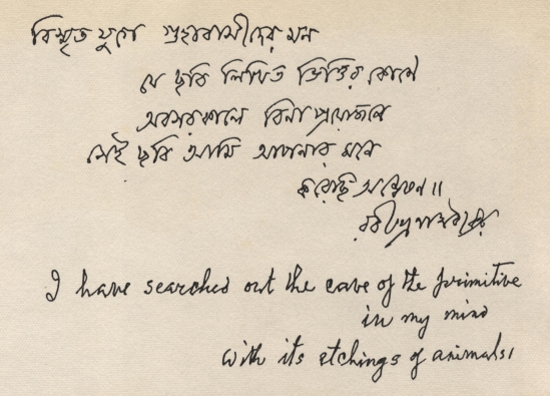 বিস্মৃত যুগে গুহাবাসীদের মন
যে ছবি লিখিত ভিত্তির কোণে
অবসরকালে বিনা প্রয়োজনে
সেই ছবি আমি আপনার মনে
করেছি অন্বেষণ॥
রবীন্দ্রনাথ ঠাকুর
I have searched out the cave of the primitive
in my mind
with its etchings of animals।